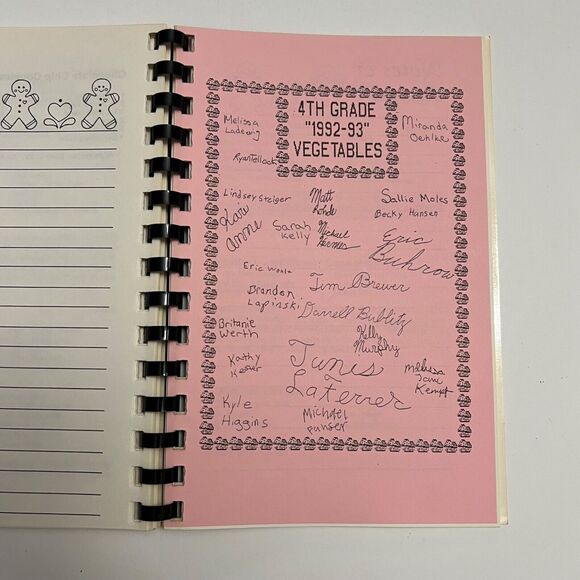 4TH GRADE
"1992-93"
VEGETABLES
Melissa
Ladewig
Miranda
Oehlke
Ryan Tellock
Lindsey Steiger
Matt
Rohde
Sallie Moles
Becky Hansen
Anne
Sarah
Kelly
Michael
Hermes
Eric
Buhrow
Eric
Tim Brewer
Brandon
Lapinski
Darrell Bublitz
Britanie
Werth
Kelly
Murphy
Kathy
James
LaTerrer
Melissa
Jane
Kempf
Kyle
Higgins
Michael